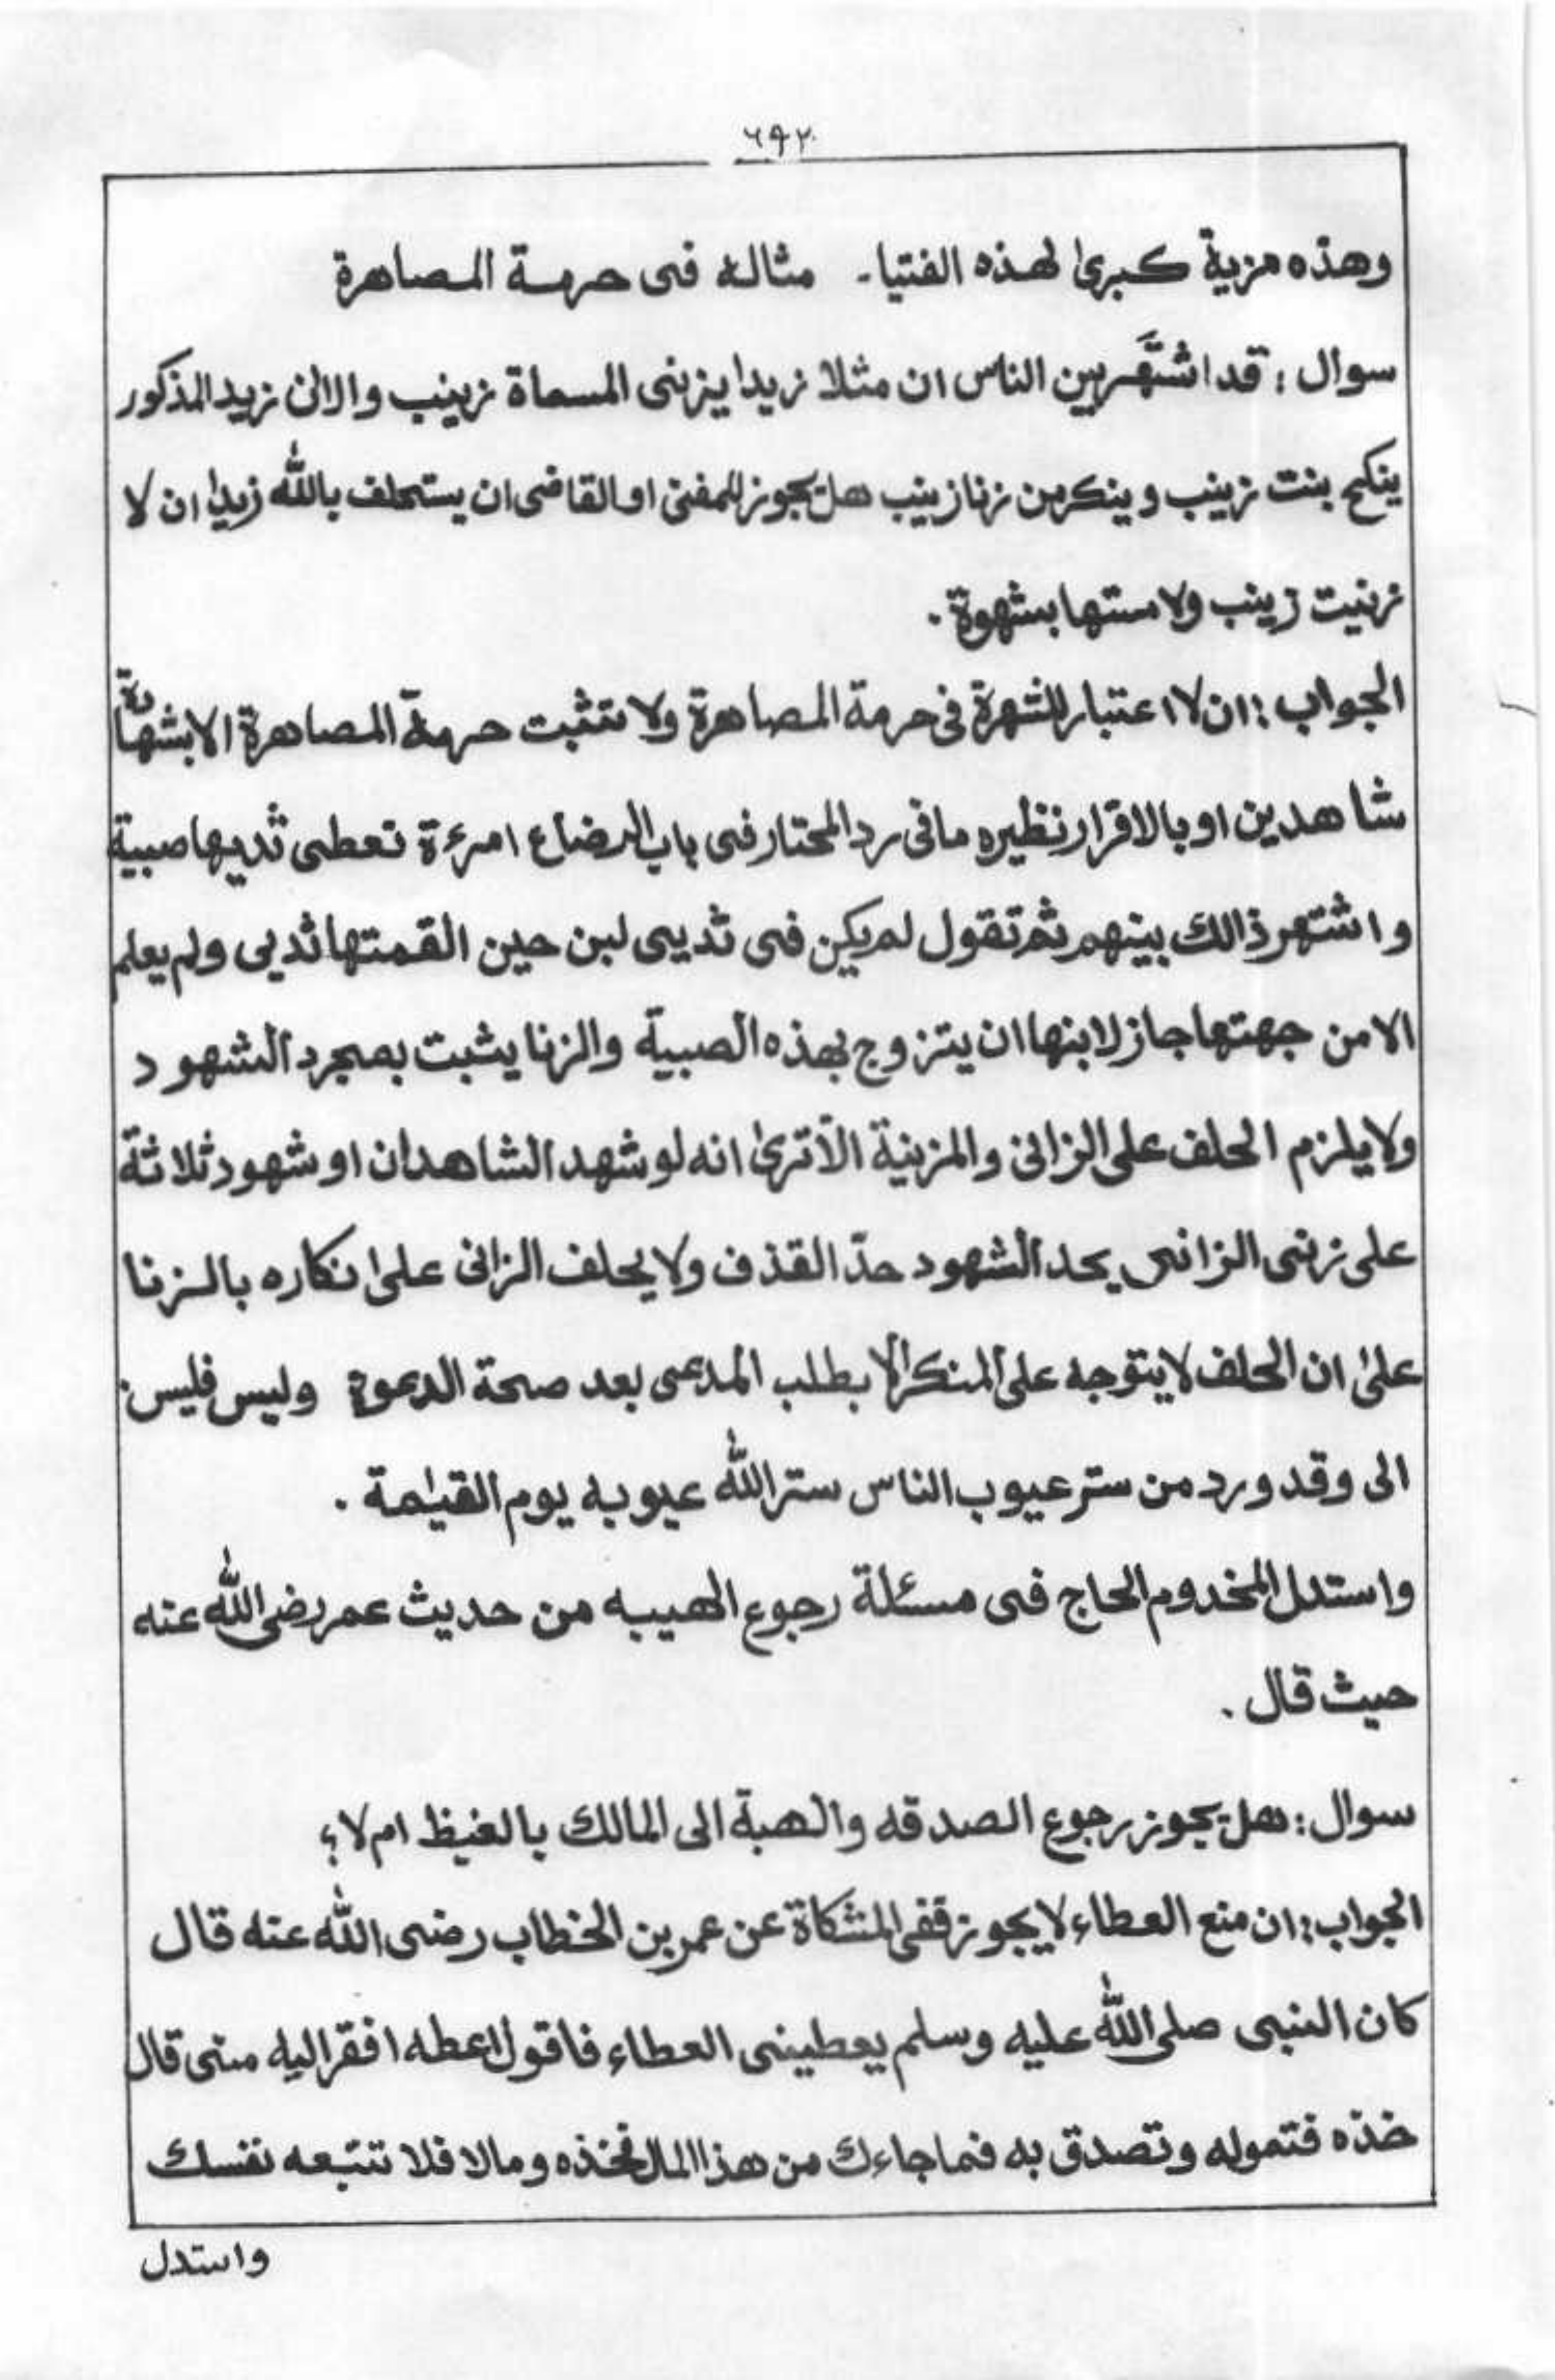 ٦٩٢
وهذه مزية كبرىٰ لهذه الفتيا ۔ مثاله فى حرمة المصاهرة
سوال : قد اشتَّهر بين الناس ان مثلا زيدا يزنى المسماة زينب والان زيد المذكور
ينكح بنت زينب وينكر من زنا زينب هل يجوز للمفتى او القاضى ان يستحلف باللّٰه زيدا ان لا
زنيت زينب ولا مستها بشهوة .
الجواب : ان لا اعتبار للشهرة فى حرمة المصاهرة ولا تثبت حرمة المصاهرة الا بشهادة
شاهدين او بالاقرار نظيره ما فى رد المحتار فى باب الرضاع امرءة تعطى ثديها صبية
واشتهر ذالك بينهم ثم تقول لم يكن فى ثديى لبن حين القمتها ثديى ولم يعلم
الا من جهتها جاز لابنها ان يتزوج بهذه الصبية والزنا يثبت بمجرد الشهود
ولا يلزم الحلف على الزانى والمزنية الا ترىٰ انه لو شهد الشاهدان او شهود ثلاثة
على زنى الزانى يحد الشهود حدّ القذف ولا يحلف الزانى علىٰ انكاره بالزنا
علىٰ ان الحلف لا يتوجه على المنكر الا بطلب المدعى بعد صحة الدعوة وليس فليس .
الى وقد ورد من ستر عيوب الناس ستر اللّٰه عيوبه يوم القيٰمة .
واستدل المخدوم الحاج فى مسئلة رجوع الهيبه من حديث عمر رضى اللّٰه عنه
حيث قال .
سوال : هل يجوز رجوع الصدقه والهبة الى المالك بالغيظ ام لا ؟
الجواب : ان منع العطاء لا يجوز ففى المشكاة عن عمر بن الخطاب رضى اللّٰه عنه قال
كان النبى صلى اللّٰه عليه وسلم يعطينى العطاء فاقول اعطه افقر اليه منى قال
خذه فتموله وتصدق به فما جاءك من هذا المال فخذه ومالا فلا تتبعه نفسك
واستدل